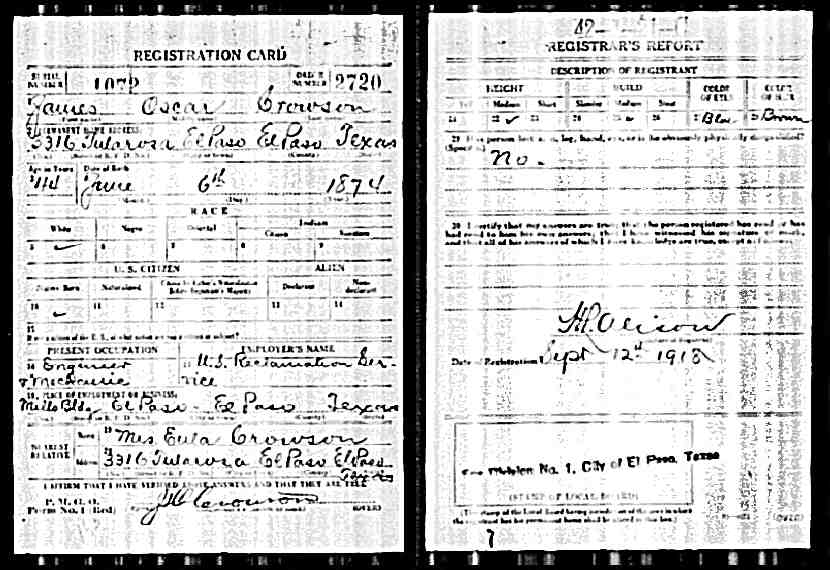 REGISTRATION CARD
SERIAL NUMBER 1072 ORDER NUMBER 2720
James Oscar Crowson
PERMANENT HOME ADDRESS:
3316 Tularosa El Paso El Paso Texas
Age in Years Date of Birth
44 June 6th 1874
RACE
White Negro Oriental Indian
Citizen Noncitizen
5 ✓ 6 7 8 9
U. S. CITIZEN ALIEN
Native Born Naturalized Citizen by Father's Naturalization Before Registrant's Majority Declarant Non-declarant
10 ✓ 11 12 13 14
15
PRESENT OCCUPATION EMPLOYER'S NAME
16 Engineer 17 U.S. Reclamation Ser-
& Mechanic vice
18 PLACE OF EMPLOYMENT OR BUSINESS:
Mills Bldg El Paso El Paso Texas
NEAREST RELATIVE Name 19 Mrs Eula Crowson
Address 20 3316 Tularosa El Paso El Paso
Texas
I AFFIRM THAT I HAVE VERIFIED ABOVE ANSWERS AND THAT THEY ARE TRUE
P. M. G. O.
Form No. 1 (Red)
J O Crowson
(OVER)
REGISTRAR'S REPORT
DESCRIPTION OF REGISTRANT
HEIGHT BUILD COLOR OF EYES COLOR OF HAIR
Tall Medium Short Slender Medium Stout
21 22 ✓ 23 24 25 26 27 Blue 28 Brown
29 Has person lost arm, leg, hand, eye, or is he obviously physically disqualified?
(Specify.)
No.
30 I certify that my answers are true; that the person registered has read or has
had read to him his own answers; that I have witnessed his signature or mark,
and that all of his answers of which I have knowledge are true, except as follows:
Date of Registration Sept 12th 1918
Division No. 1, City of El Paso, Texas
(STAMP OF LOCAL BOARD)
(The stamp of the Local Board having jurisdiction of the area in which
the registrant has his permanent home shall be placed in this box.)
(OVER)